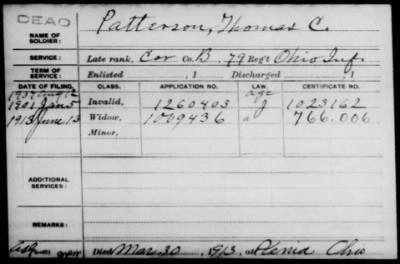 DEAD
NAME OF SOLDIER: Patterson, Thomas C.
SERVICE: Late rank, Cor Co. B, 79 Reg't Ohio Inf.
TERM OF SERVICE: Enlisted , 1 Discharged , 1
DATE OF FILING. CLASS. APPLICATION NO. LAW. CERTIFICATE NO.
age
1901 Jan 5 Invalid, 1260403 J 1023162
1913 June 13 Widow, 1009436 a 766.006
Minor,
ADDITIONAL SERVICES:
REMARKS:
Died Mar 30, 1913, at Ohio